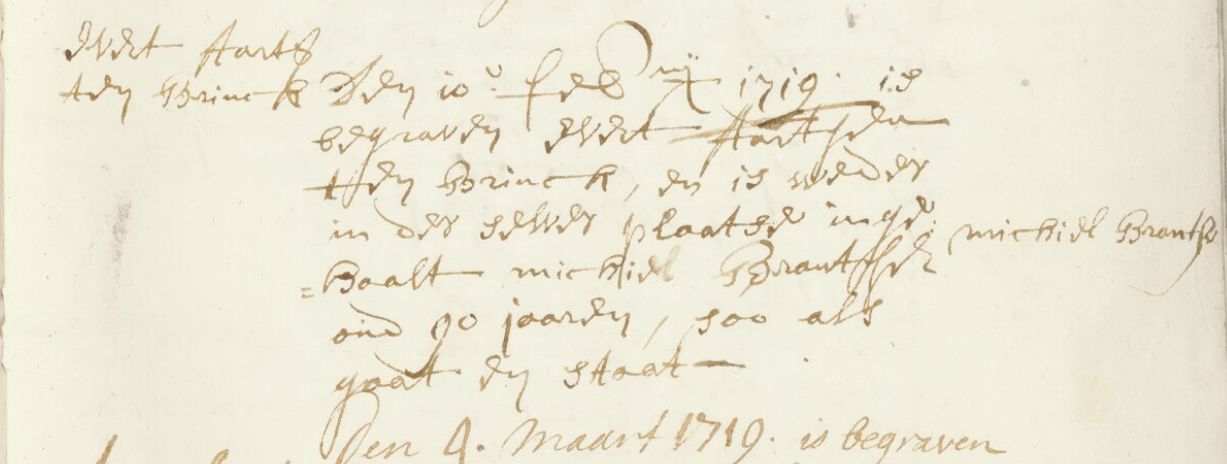 Evert Aarts
ten Brinck
Den 10e. febrarij 1719. is
begraven Evert Aartsen
ten Brinck, en is weder
in der selver plaatse inge:
=haalt michiel Brantsen
michiel Brants
oud 90 jaaren, soo als
gaat en staat
Den 4. Maart 1719. is begraven